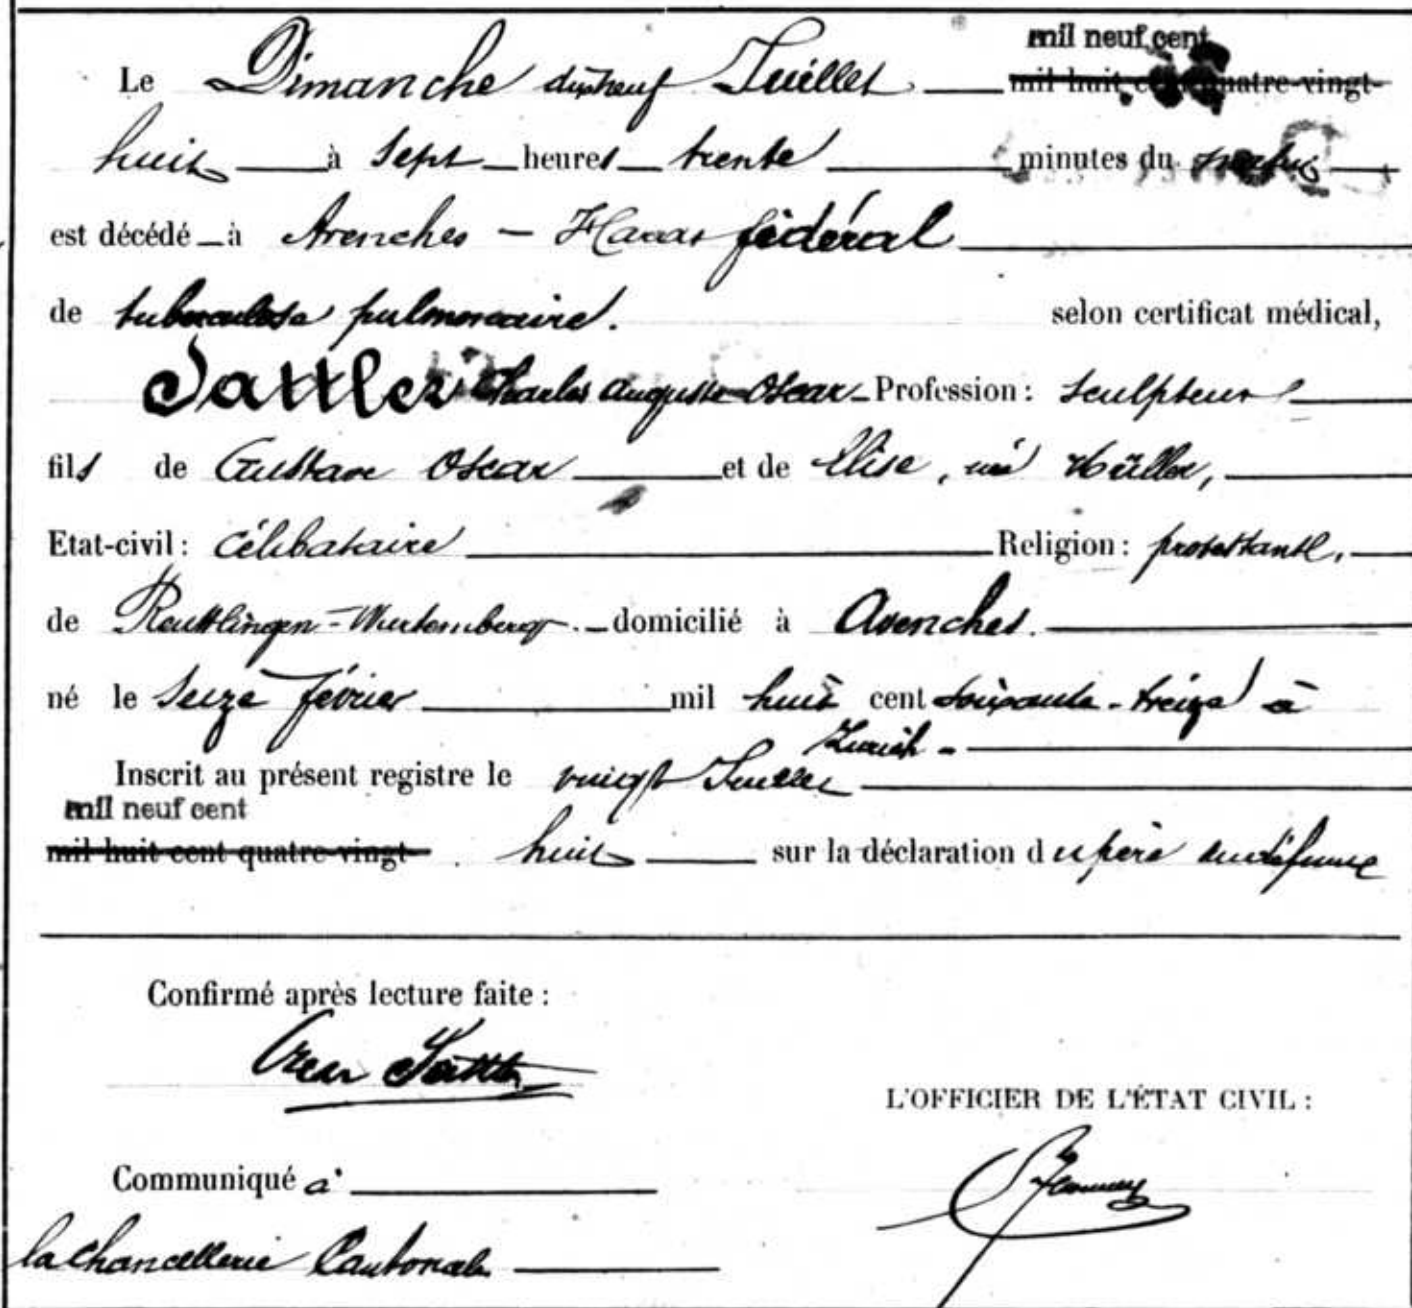 mil neuf cent
Le Dimanche dixneuf Juillet mil huit cent quatre-vingt-
huit à Sept heures trente minutes du matin
est décédé à Avenches - Haras fédéral
de tuberculose pulmonaire. selon certificat médical,
Sattler Charles Auguste Oscar Profession : Sculpteur
fils de Gustave Oscar et de Elise, née Müller,
Etat-civil : Célibataire Religion : protestante.
de Reuttlingen - Wurtemberg domicilié à Avenches.
né le Seize février mil huit cent soixante-treize à
Zurich -
Inscrit au présent registre le vingt Juillet
mil neuf cent
mil huit cent quatre-vingt- huit sur la déclaration du père du défunt
Confirmé après lecture faite :
Oscar Sattler
L'OFFICIER DE L'ÉTAT CIVIL :
Communiqué à
la Chancellerie Cantonale